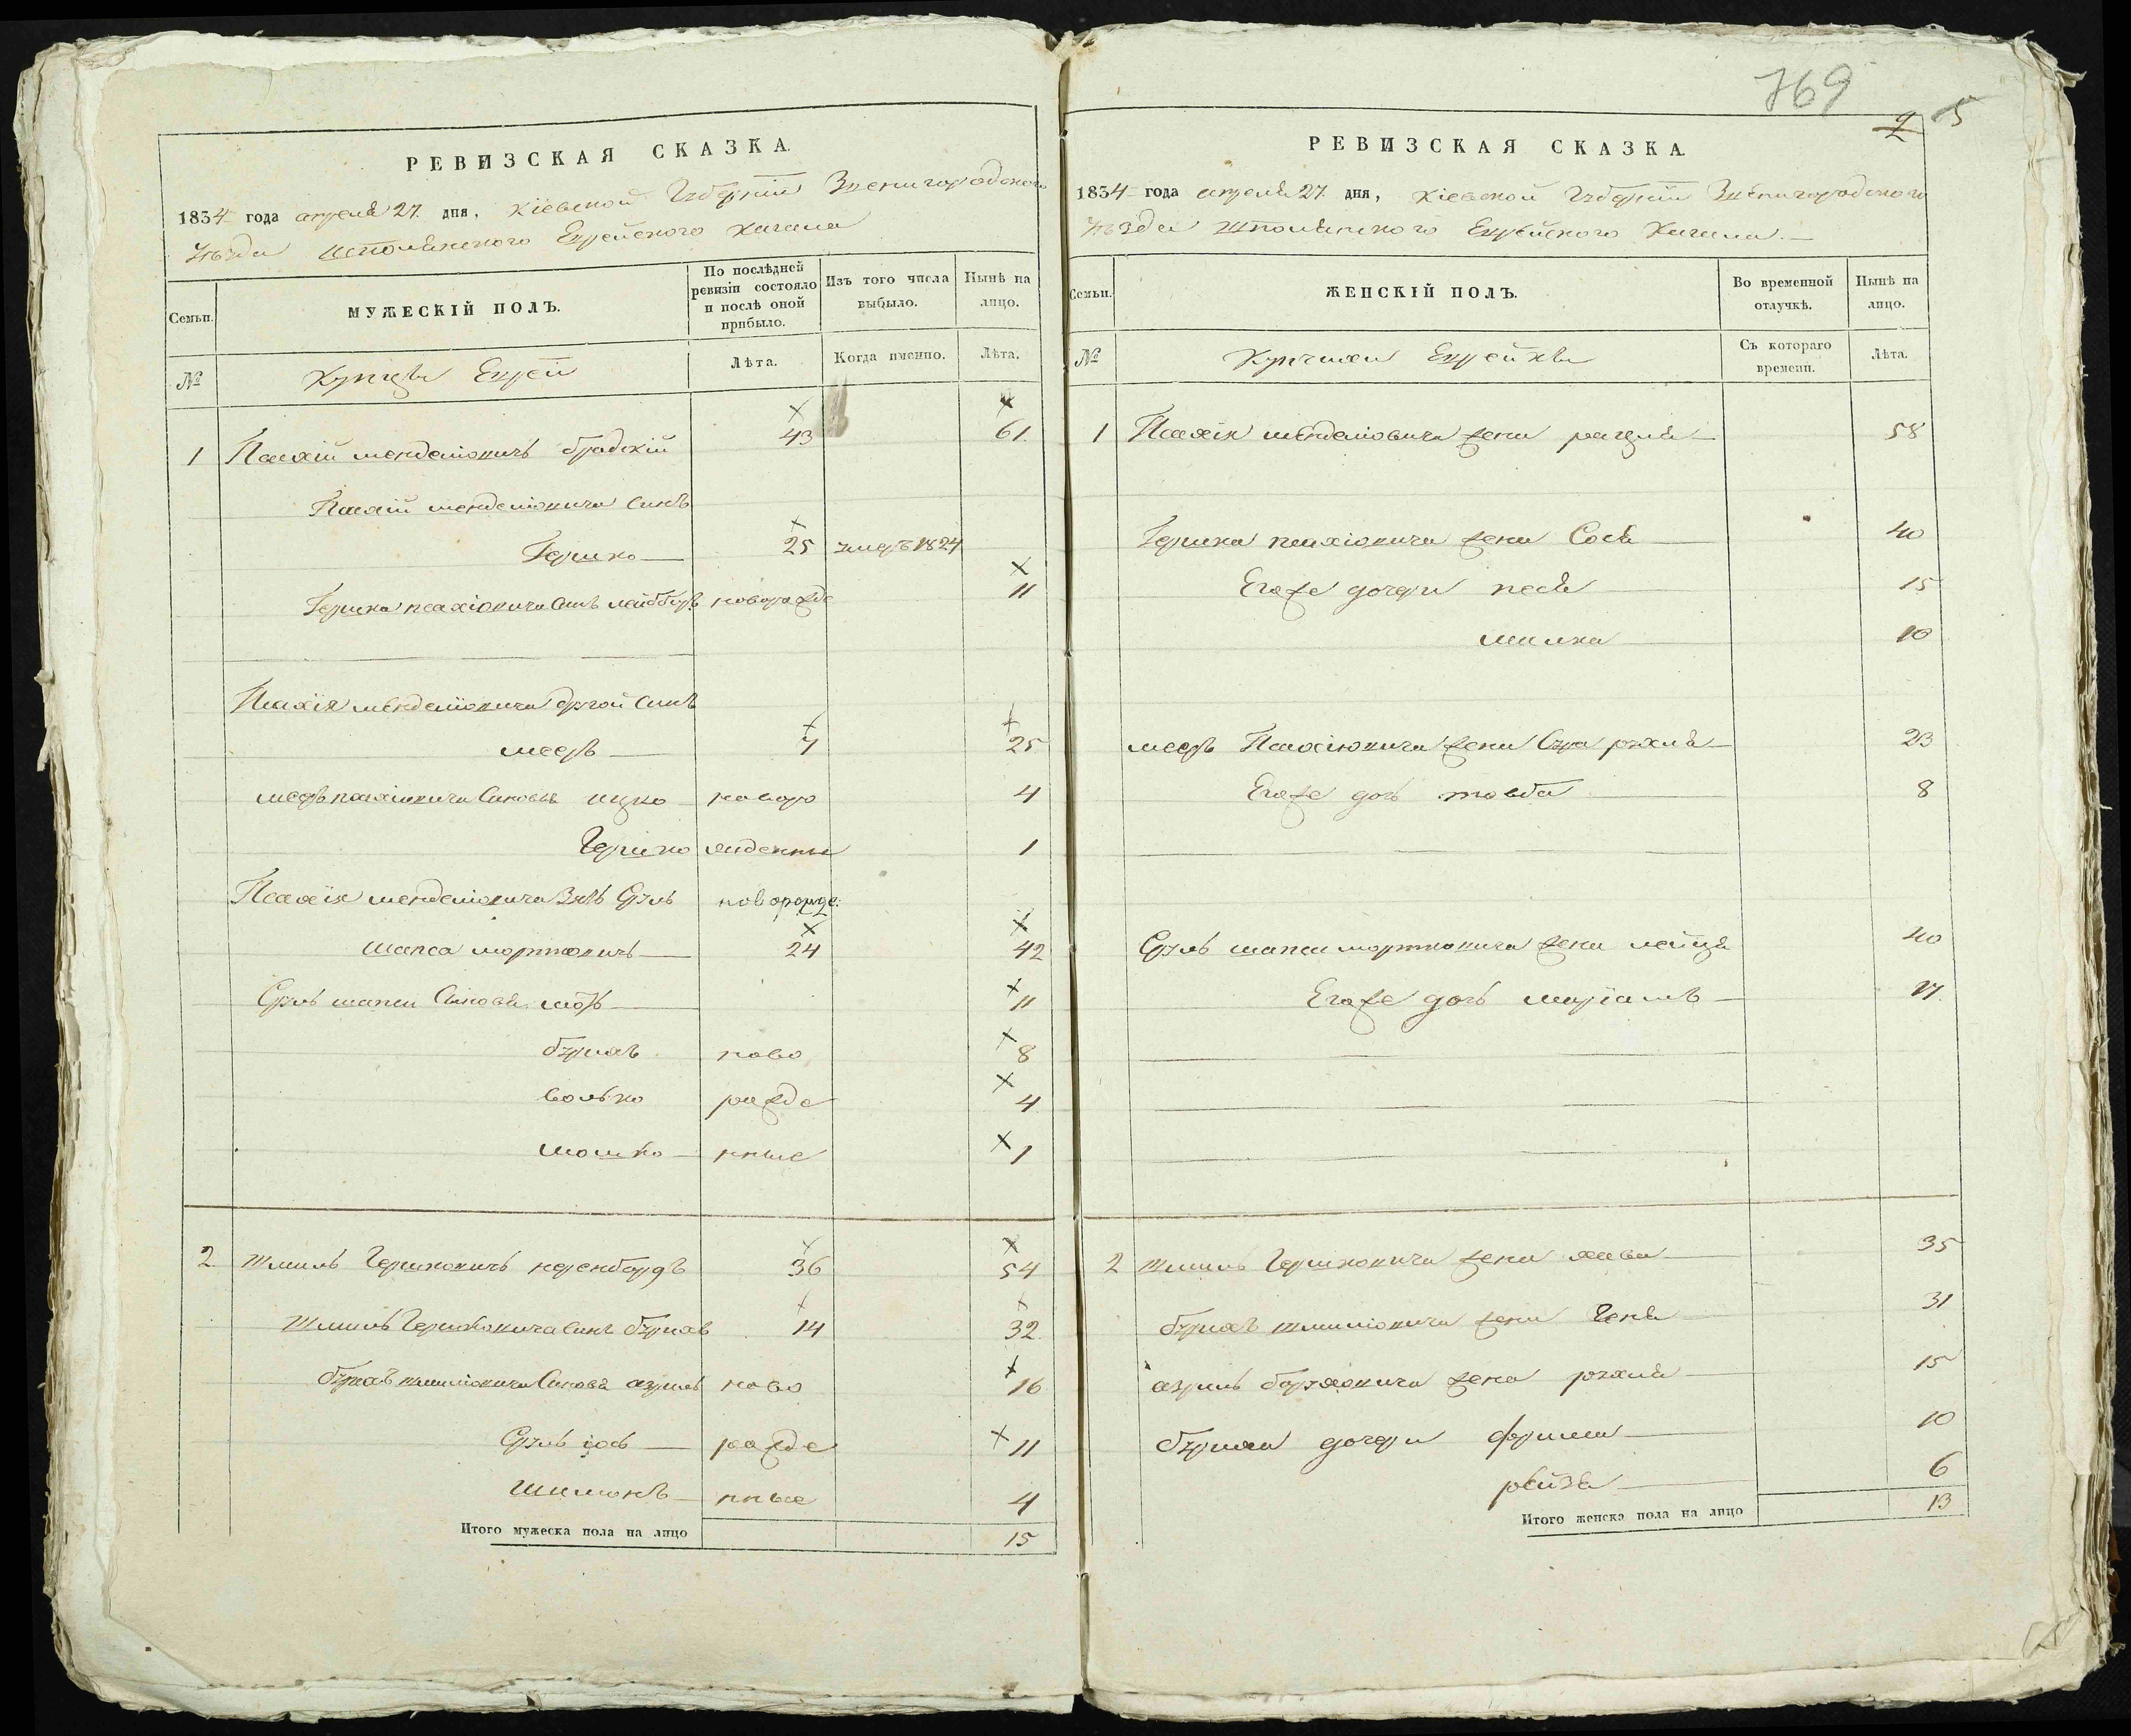 769
2 5
РЕВИЗСКАЯ СКАЗКА.
1834 года апреля 27. дня, Кіевской Губерніи Звенигородского
уѣзда Шполянского Еврейского Кагала
Семьи.
МУЖЕСКІЙ ПОЛЪ.
По послѣдней ревизіи состояло и послѣ оной прибыло.
Изъ того числа выбыло.
Нынѣ на лицо.
№
Купцы Евреи
Лѣта.
Когда именно.
Лѣта.
1 Псахій Менделіовичъ Бродскій 43 61
Псахій Менделіовича Синъ
Гершко 25 умеръ 1824
Гершка Псахіовича Синъ Лейбберъ новорожде 11
Псахія Менделіовича другой Синъ
Мееръ 7 25
Мееръ Псахіовича Синовья Ицко новоро 4
Гершко жденные 1
Псахія Менделіовича Зять Сруль новорожде:
Шапса Мортковичъ 24 42
Сруль Шапси Синовя 11
Бурихъ ново 8
Волько рожде 4
Мошко нные 1
2 Шмиль Гершковичъ 36 54
Шмиль Гершковича Синъ Бурихъ 14 32
Бурихъ Шмиліовича Синовя Азриль ново 16
Сруль Іось рожде 11
Шимонъ нные 4
Итого мужеска пола на лицо 15
РЕВИЗСКАЯ СКАЗКА.
1834 года апреля 27. дня, Кіевской Губерніи Звенигородского
уѣзда Шполянского Еврейского Кагала.
Семьи.
ЖЕНСКІЙ ПОЛЪ.
Во временной отлучкѣ.
Нынѣ на лицо.
№
Купчихи Еврейки
Съ котораго времени.
Лѣта.
1 Псахія Менделіовича жена Рагуля 58
Гершка Псахіовича жена Сося 40
Егоже дочери Песя 15
Милка 10
Мееръ Псахіовича жена Сура Рухля 23
Егоже дочь Товба 8
Сруль Шапси Мортковича жена Лейця 40
Егоже дочь Миріамъ 17
2 Шмиль Гершковича жена Хава 35
Бурихъ Шмиліовича жена Геня 31
Азриль Борухович жена Рухля 15
Бурихи дочери Фрима 10
Рейзя 6
Итого женска пола на лицо 13